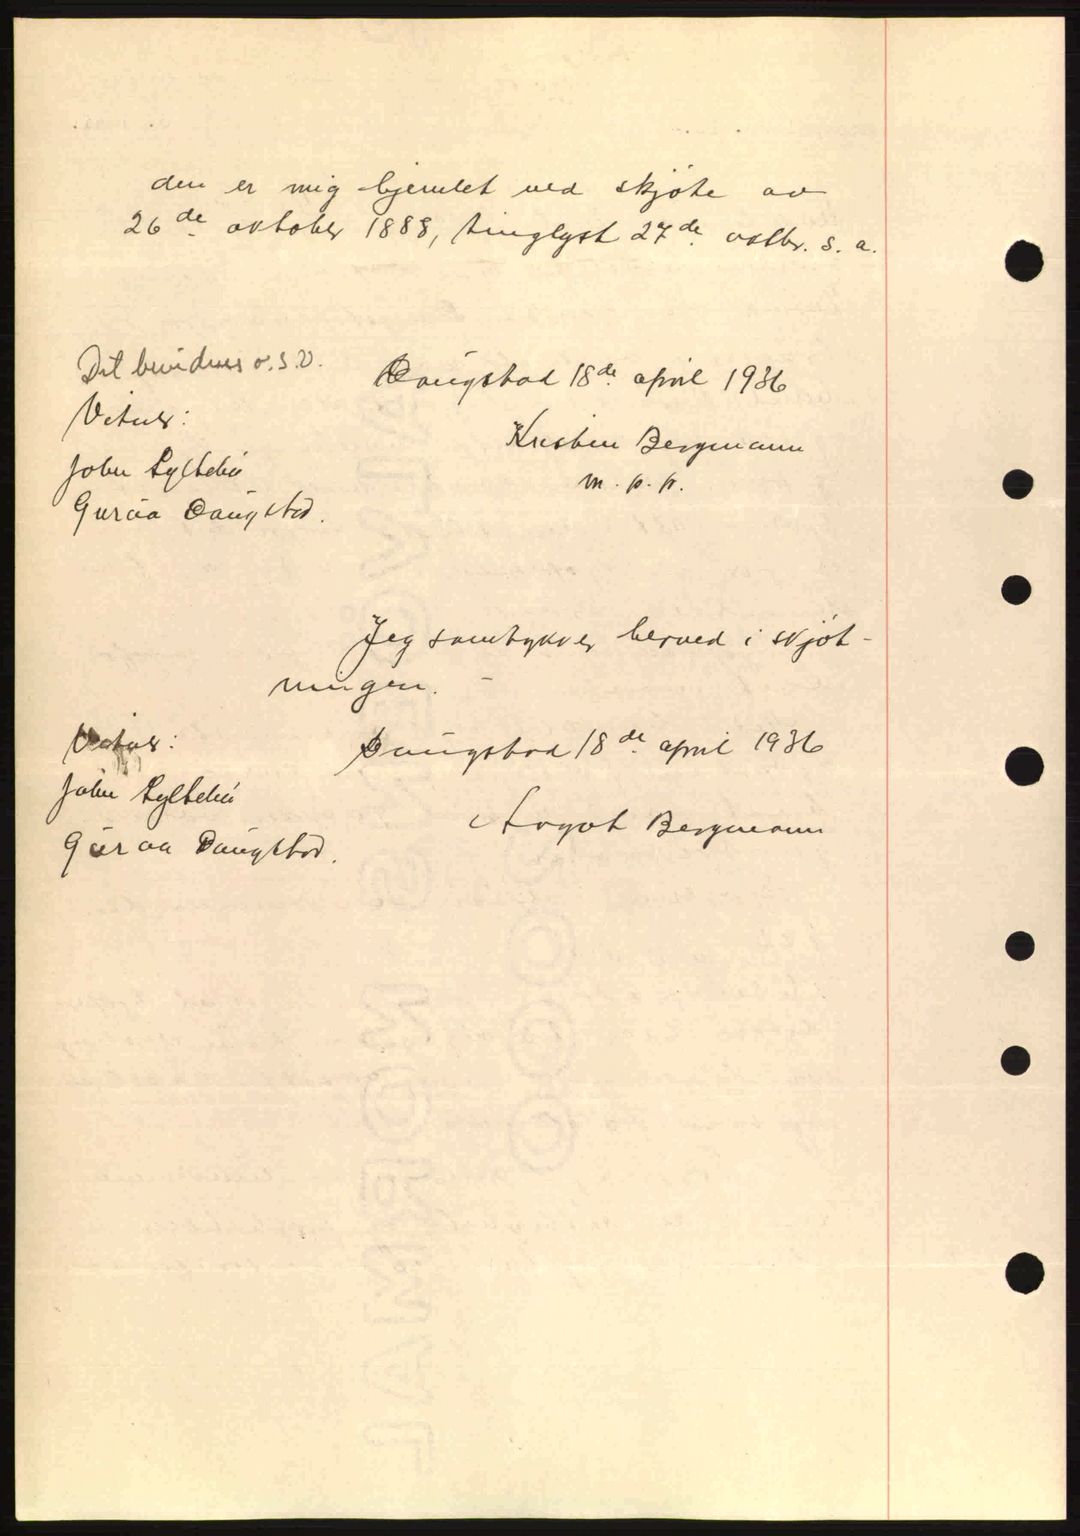 den er mig hjemlet ved skjøte av
26de oktober 1888, tinglyst 27de oktbr. s. a.
Det bevidnes o.s.v.
Daugstad 18de april 1936
Vitner:
Kristen Bergmann
John Sylte
m. p. p.
Daugstad.
Jeg samtykker herved i skjøt-
ningen.
Vitner:
Daugstad 18de april 1936
John Sylte
Bergmann
Daugstad.